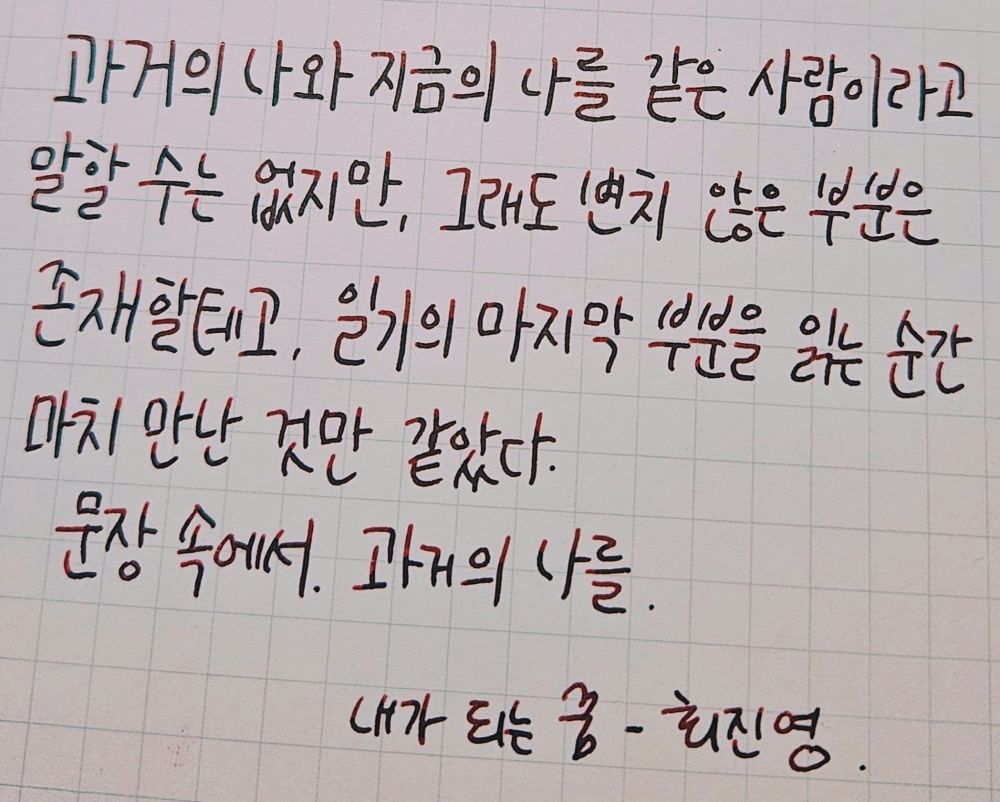 과거의 나와 지금의 나를 같은 사람이라고
말할 수는 없지만, 그래도 변치 않은 부분은
존재할테고, 일기의 마지막 부분을 읽는 순간
마치 만난 것만 같았다.
문장 속에서. 과거의 나를.
내가 되는 꿈 - 최진영.